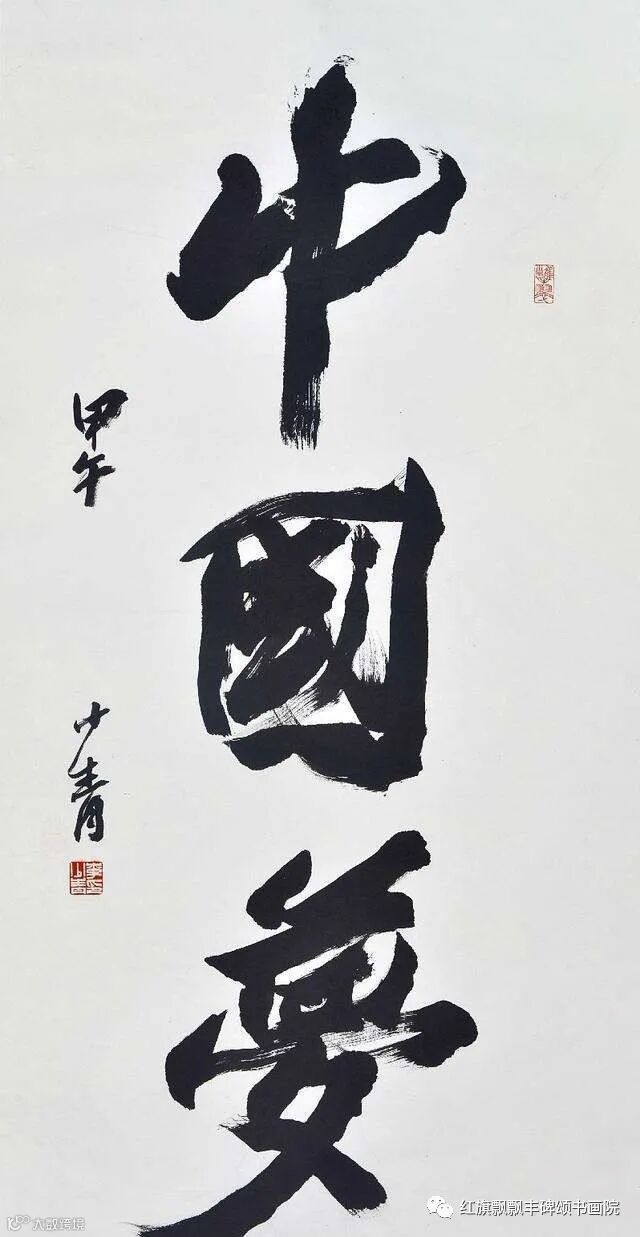 中國夢
甲午
少青
红旗飘飘丰碑颂书画院
大数跨境